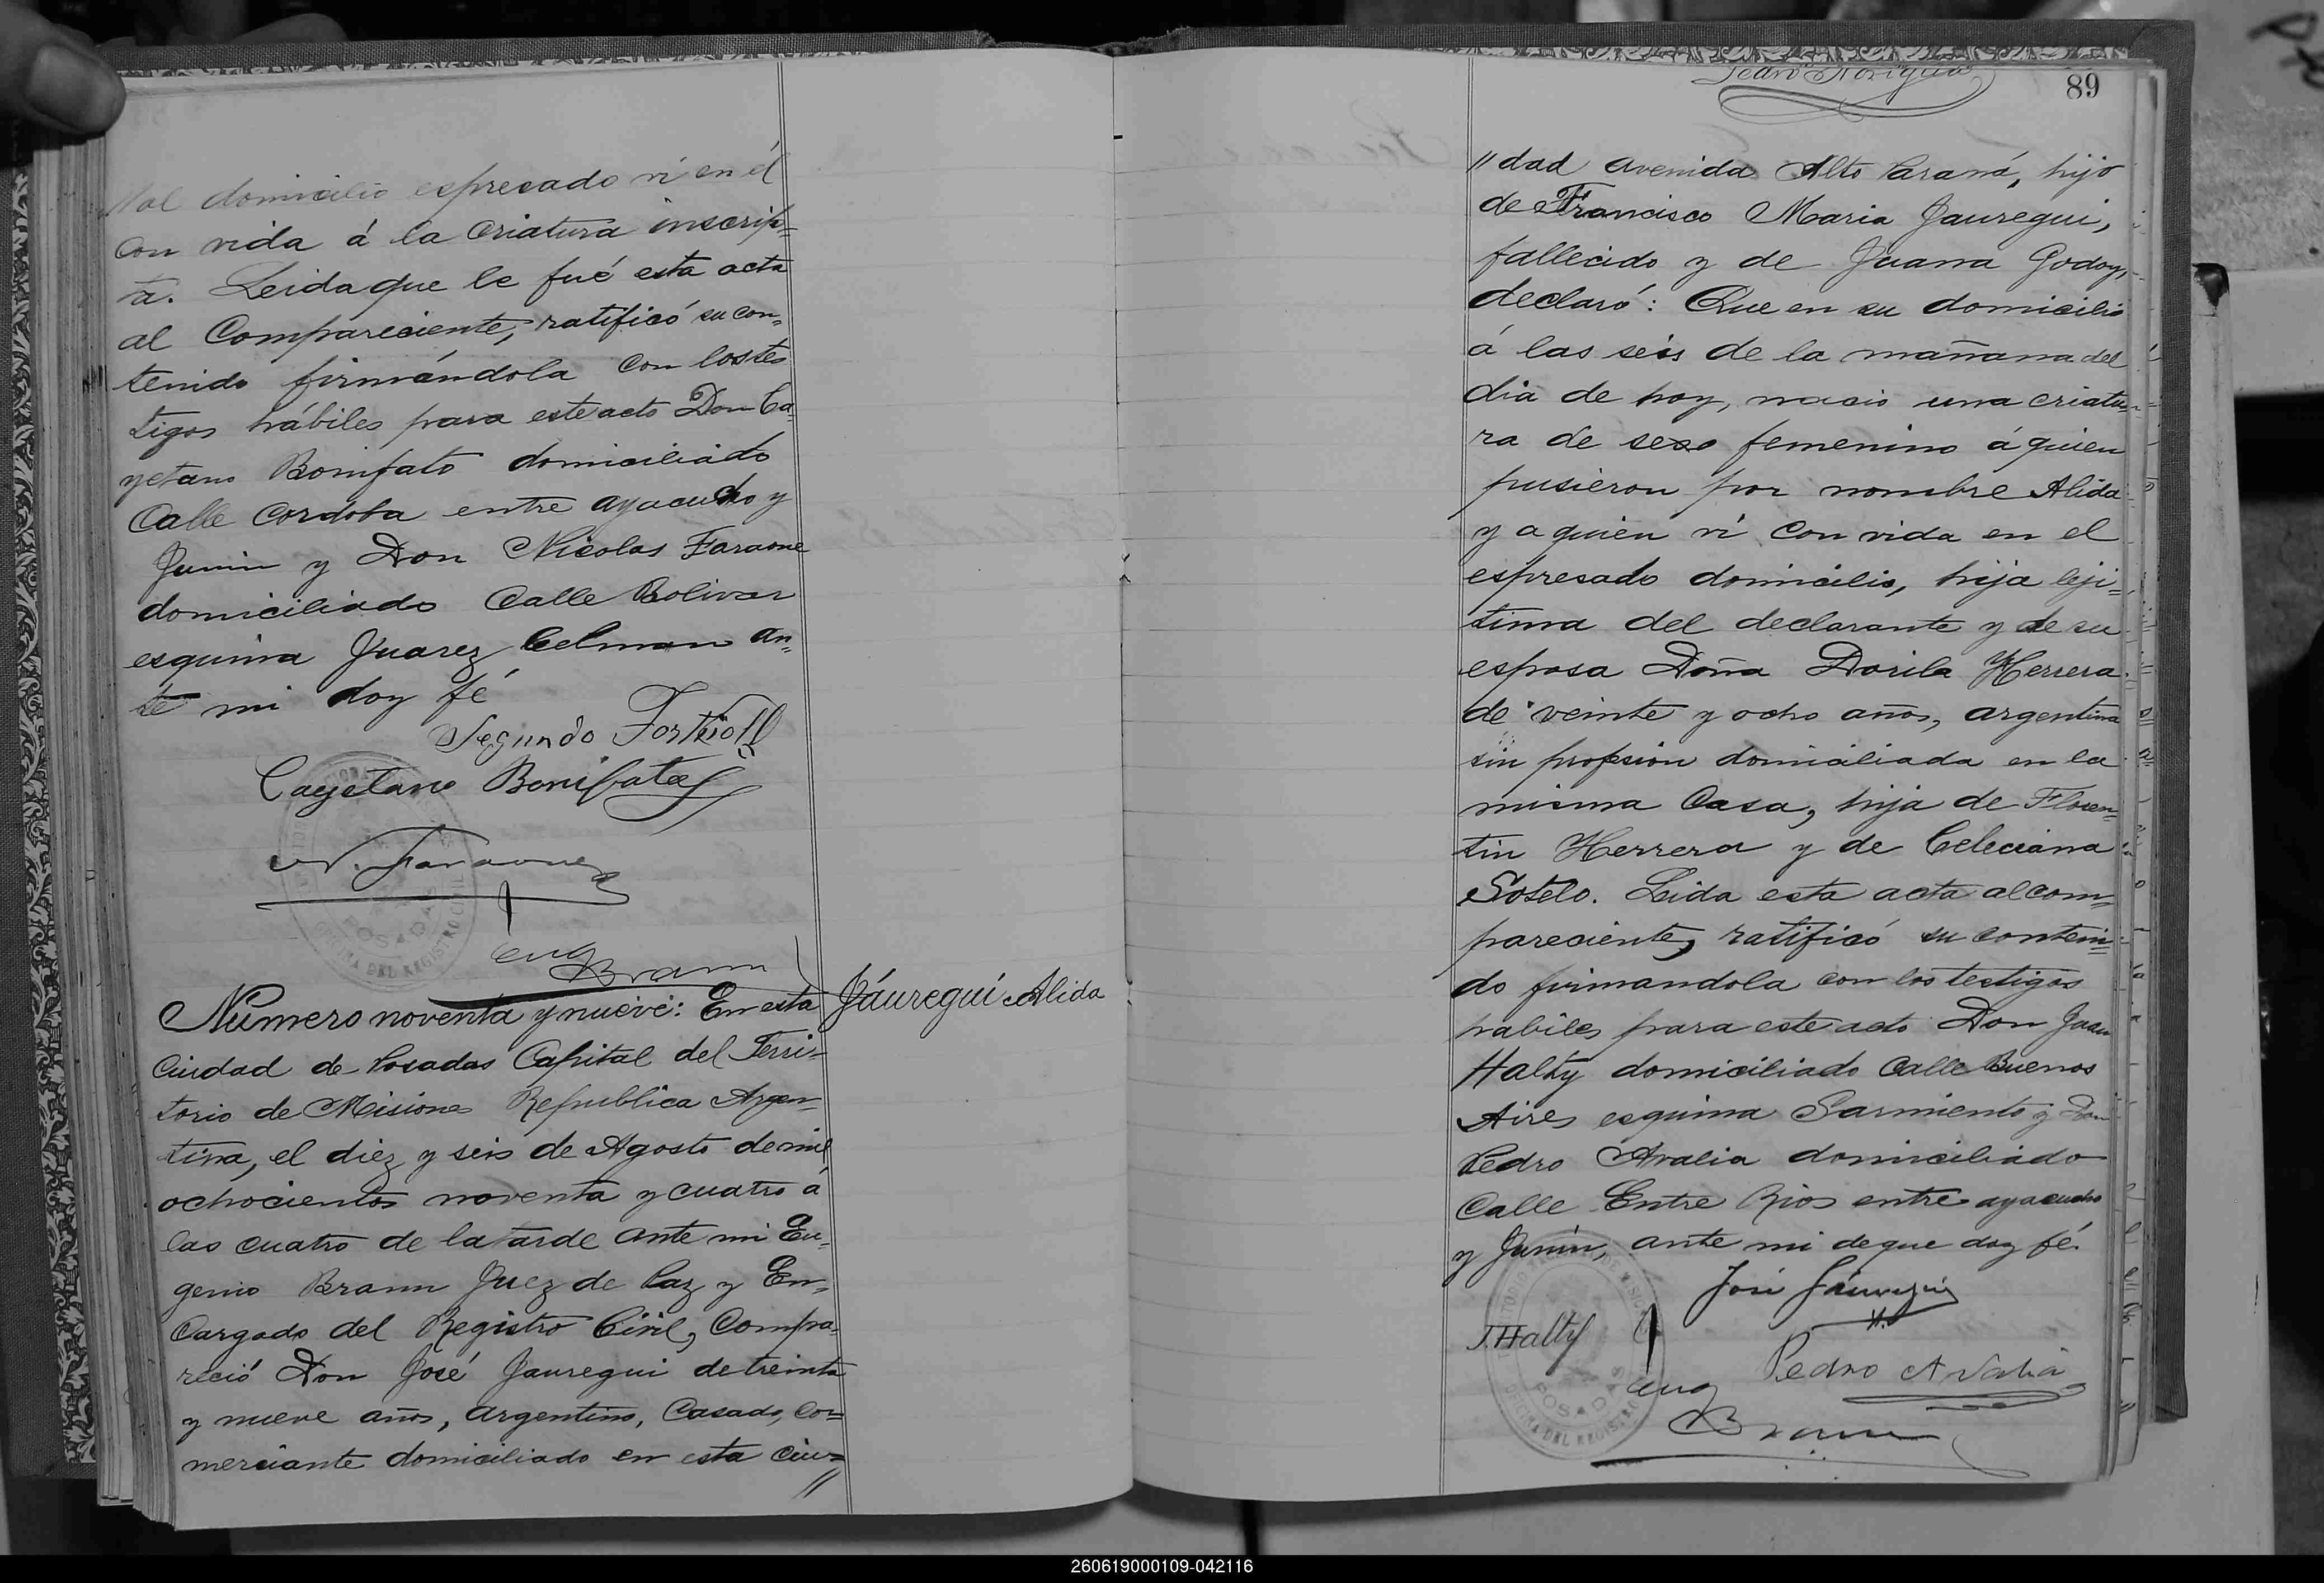 //al domicilio espresado ví en él
con vida á la criatura inscrip=
ta. Leida que le fué esta acta
al Compareciente, ratificó su con=
tenido firmándola con los tes
tigos hábiles para este acto Don Ca=
yetano Bonifato domiciliado
Calle Cordoba entre ayacucho y
Junin y Don Nicolas Faraone
domiciliado Calle Bolivar
esquina Juarez Celman an=
te mi doy fé
Segundo
Cayetano Bonifato
N. Faraone
Eug
Braun
Numero noventa y nueve: En esta
Jáuregui Alida
Ciudad de Posadas Capital del Terri=
torio de Misiones Republica Argen=
tina, el diez y seis de Agosto de mil
ochocientos noventa y cuatro á
las cuatro de la tarde ante mi Eu=
genio Braun Juez de Paz y En=
cargado del Registro Civil, Compa=
reció Don José Jauregui de treinta
y nueve años, argentino, Casado, Co=
merciante domiciliado en esta Ciu=
//
89
//dad avenida Alto Paraná, hijo
de Francisco Maria Jauregui,
fallecido y de Juana Godoy,
declaró: Que en su domicilio
á las seis de la mañana del
dia de hoy, nació una criatu=
ra de sexo femenino á quien
pusieron por nombre Alida
y a quien ví con vida en el
espresado domicilio, hija leji=
tima del declarante y de su
esposa Doña Dorila Herrera
de veinte y ocho años, argentina
sin profesion domiciliada en la
misma Casa, hija de Floren=
tin Herrera y de Celeciana
Sotelo. Leida esta acta al com=
pareciente, ratificó su conteni=
do firmandola con los testigos
habiles para este acto Don Juan
Halty domiciliado Calle Buenos
Aires esquina Sarmiento y Don
Pedro Avalia domiciliado
Calle Entre Rios entre ayacucho
y Junin, ante mi de que doy fé.
José Jáuregui
J. Halty
Pedro Avalia
Eug
Braun
260619000109-042116